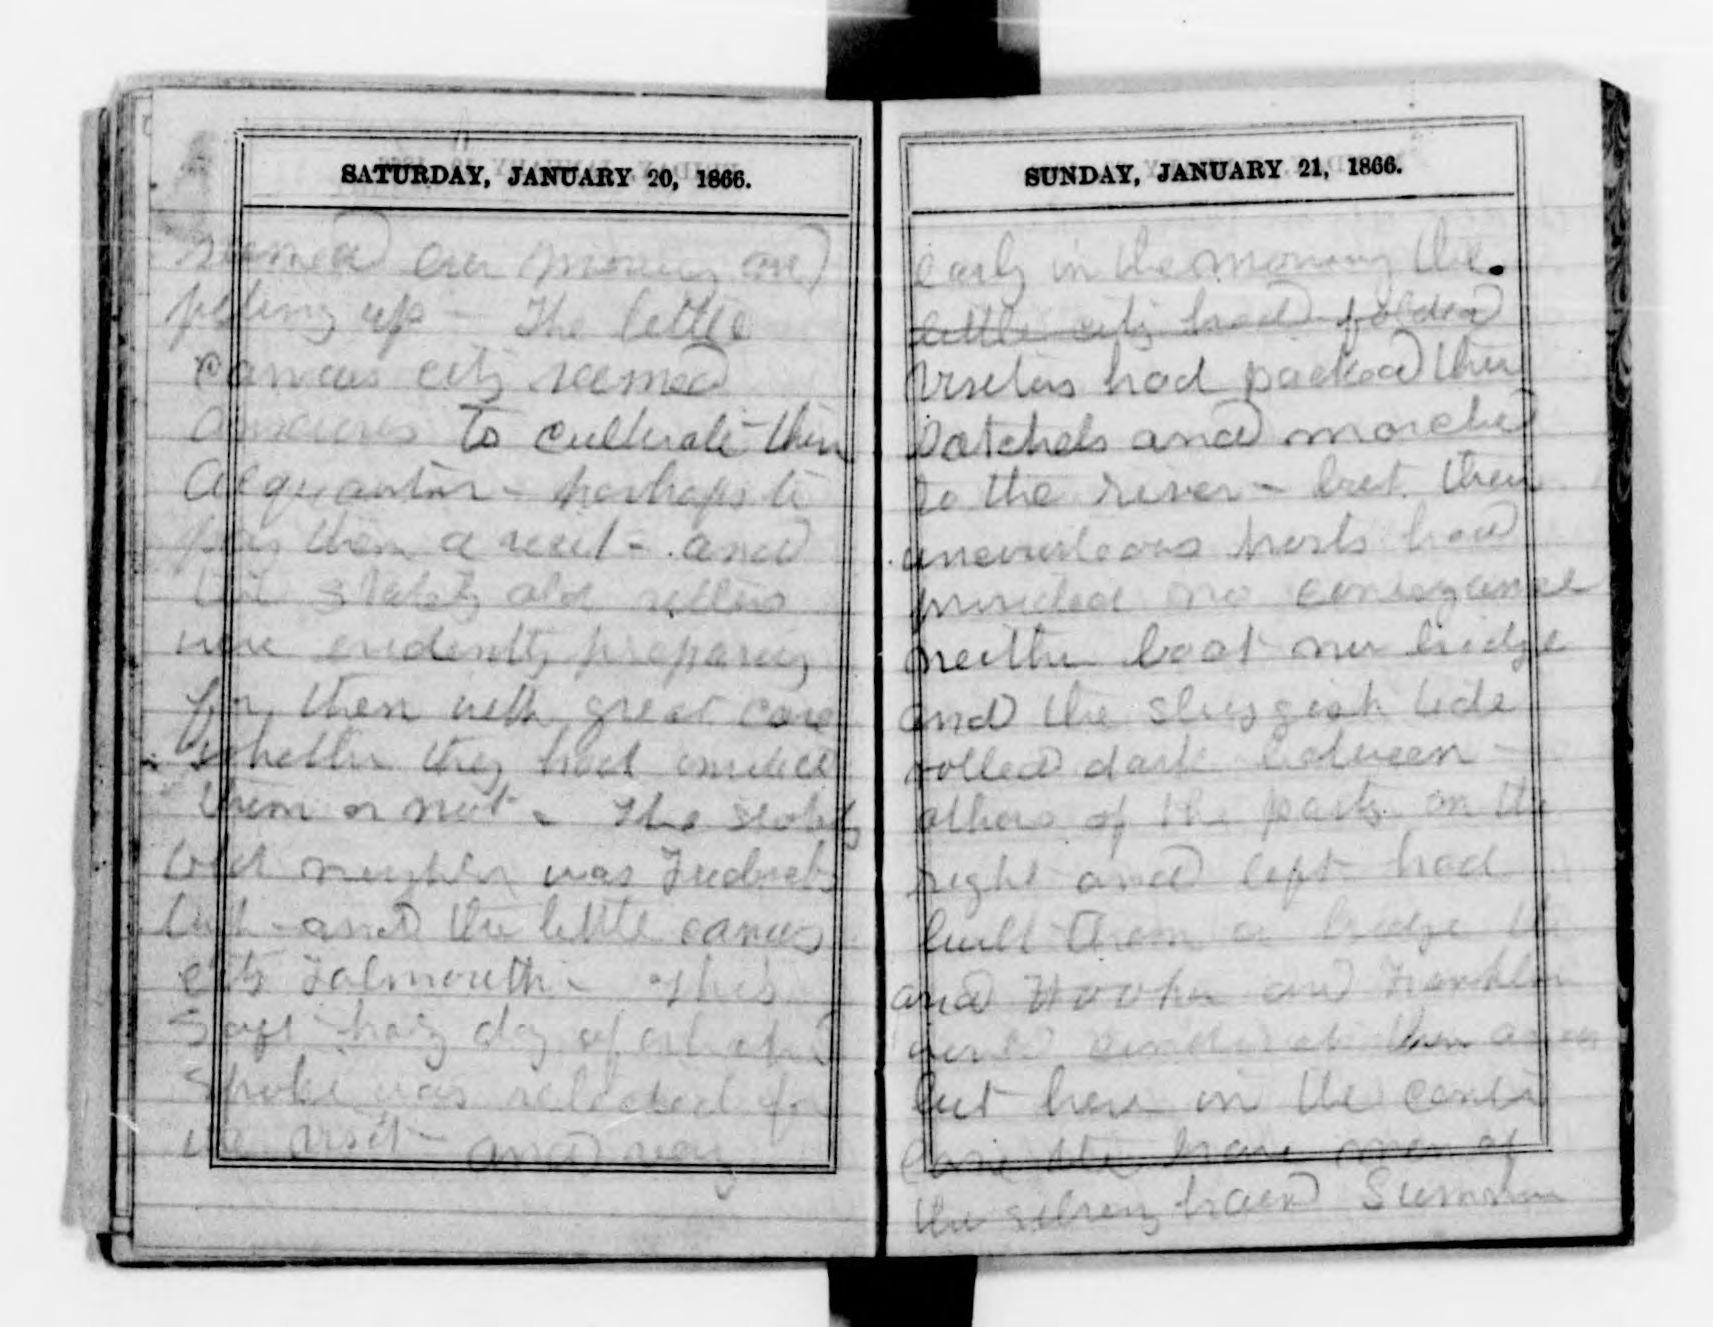 SATURDAY, JANUARY 20, 1866.
seemed ever moving and
pitting up - The little
canvas city seemed
anxious to cultivate their
acquantan - perhaps to
pay them a visit - and
the stately old settlers
were evidently preparing
for them with great care
whether they had invited
them or not - The stately
old neighbor was Fredricks
burh - and the little canvas
city Falmouth - This
soft hazy day of
smoke was selected for
the visit - and very
SUNDAY, JANUARY 21, 1866.
early in the morning the
little city had folded
visitors had packed their
satchels and marched
to the river - but their
uncourteous hosts had
provided no conveyance
neither boat nor bridge
and the sluggish tide
rolled dark between -
others of the party on the
right and left had
built them a bridge
and Hooker and Franklin
them across
but here in the center
lay the brave men of
the silvery haired Sumner